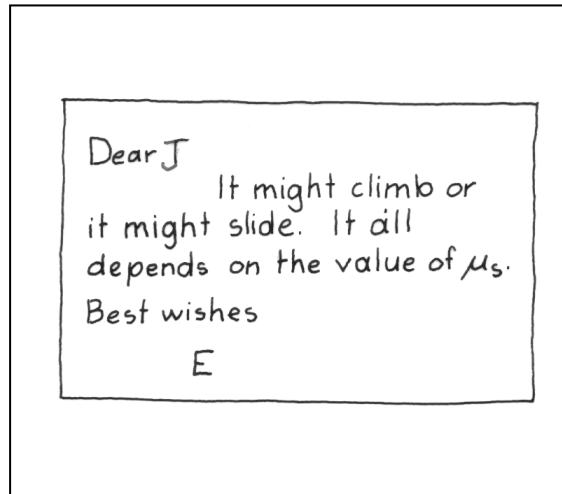 Dear J
It might climb or
it might slide. It all
depends on the value of μs.
Best wishes
E